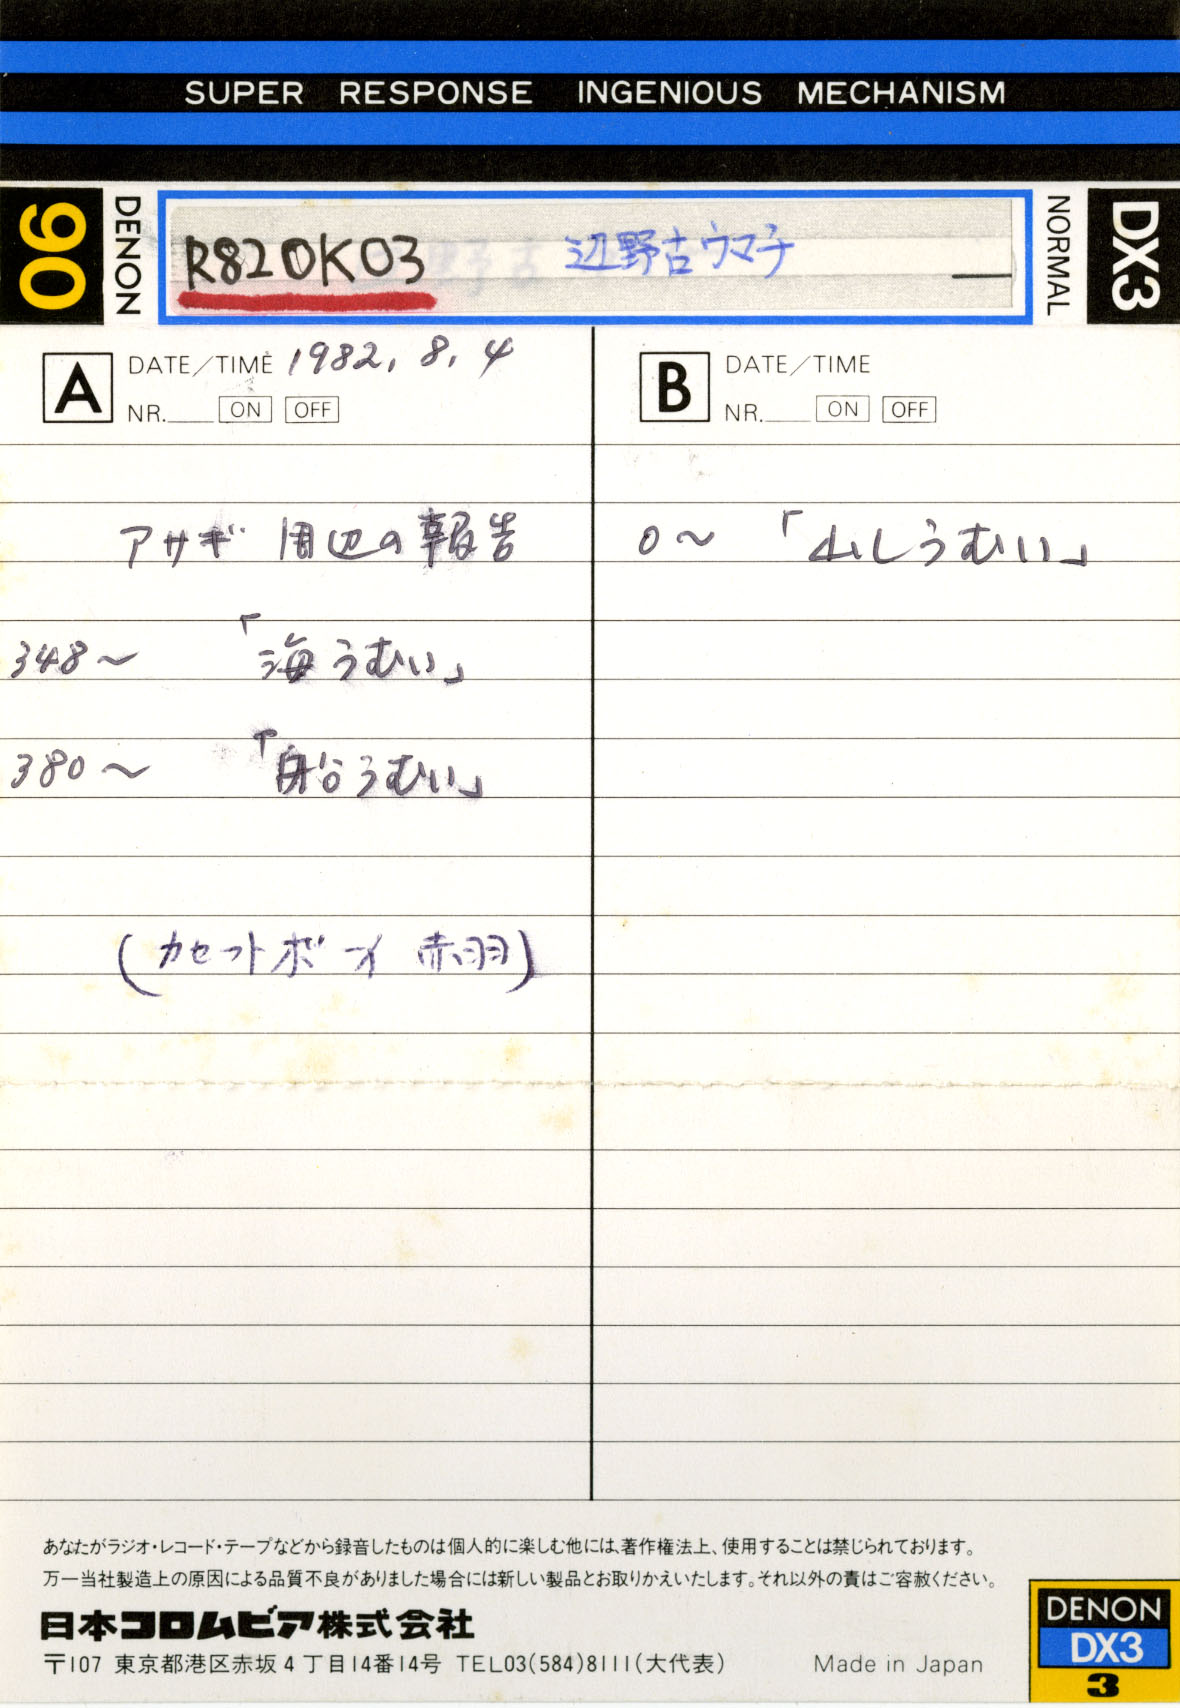 SUPER RESPONSE INGENIOUS MECHANISM
90
DENON
R820K03 辺野古ウマチー
NORMAL
DX3
A DATE/TIME 1982. 8. 4
NR. ON OFF
アサギ 周辺の報告
348～ 「海うむい」
380～ 「船うむい」
(カセットボーイ 赤羽)
B DATE/TIME
NR. ON OFF
0～ 「山しうむい」
あなたがラジオ・レコード・テープなどから録音したものは個人的に楽しむ他には、著作権法上、使用することは禁じられております。
万一当社製造上の原因による品質不良がありました場合には新しい製品とお取りかえいたします。それ以外の責はご容赦ください。
日本コロムビア株式会社
〒107 東京都港区赤坂4丁目14番14号 TEL03(584)8111(大代表) Made in Japan
DENON
DX3
3